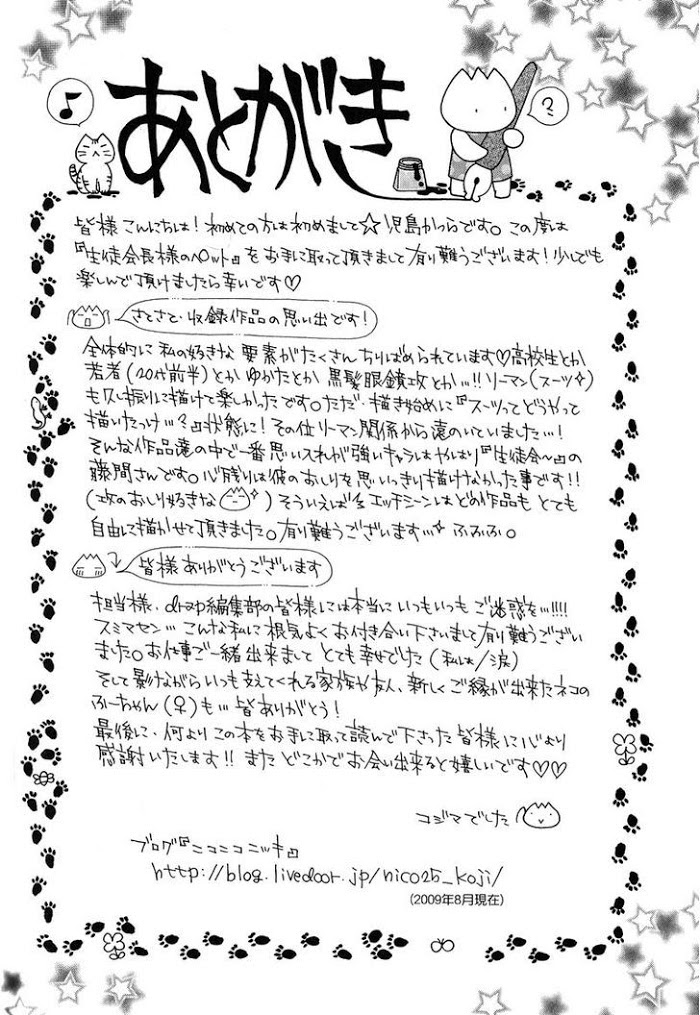 あとがき
♪
?
皆様こんにちは!初めての方は初めまして☆児島かつらです。この度は
『生徒会長様のペット』をお手に取って頂きまして有り難うございます!少しでも
楽しんで頂けましたら幸いです♡
さてさて・収録作品の思い出です!
全体的に私の好きな要素がたくさんちりばめられています♡高校生とか
若者(20代前半)とかゆかたとか黒髪眼鏡攻とか…!!リーマン(スーツ✧)
も久し振りに描けて楽しかったです。ただ・描き始めに『スーツってどうやって
描いたっけ…?』状態に!その位リーマン関係から遠のいていました…!
そんな作品達の中で一番思い入れが強いキャラはやはり『生徒会〜』の
藤間さんです。心残りは彼のおしりを思いっきり描けなかった事です!!
(攻のおしり好きな✧)そういえばエッチシーンはどの作品もとても
自由に描かせて頂きました。有り難うございます…✧ふふふ。
皆様ありがとうございます
担当様、drap編集部の皆様には本当にいつもいつもご迷惑を…!!!!
スミマセン…こんな私に根気よくお付き合い下さいまして有り難うござい
ました。お仕事ご一緒出来ましてとても幸せでした(私は/涙)
そして影ながらいつも支えてくれる家族や友人、新しくご縁が出来たネコの
ふーちゃん(♀)も…皆ありがとう!
最後に、何よりこの本をお手に取って読んで下さった皆様に心より
感謝いたします!!またどこかでお会い出来ると嬉しいです♡♡
コジマでした
ブログ『ニコニコニッキ』
http://blog.livedoor.jp/nico25_koji/
(2009年8月現在)